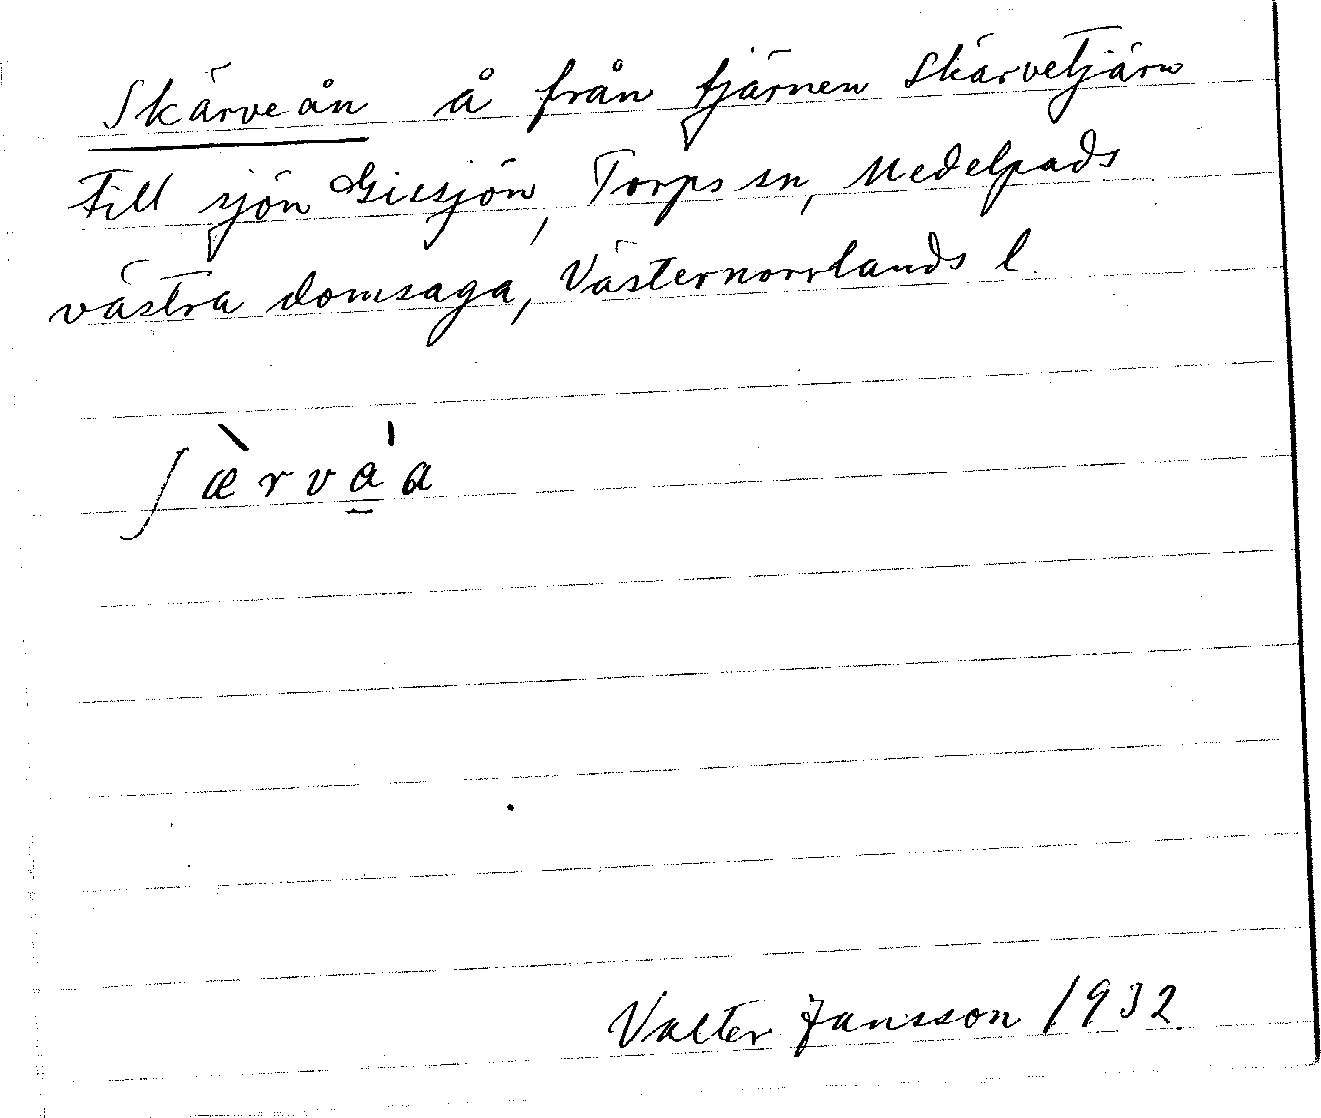 Skärveån å från tjärnen Skärvetjärn
till sjön Gissjön, Torps sn, Medelpads
västra domsaga, Västernorrlands l.
ʃæ̀rva̲ˈa
Valter Jansson 1932